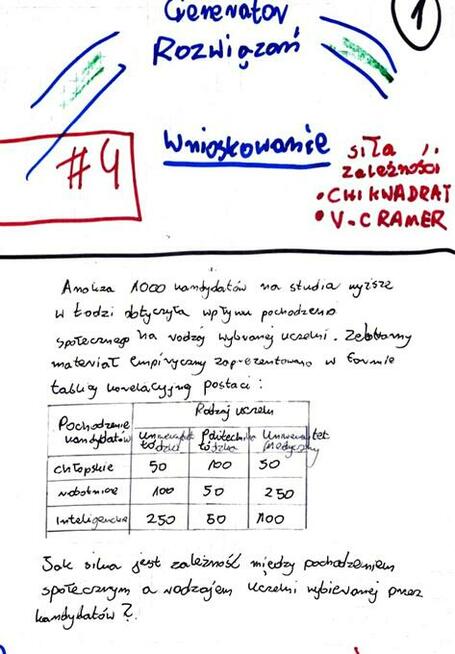 Generator
Rozwiązań
1
Wnioskowanie
#4
siła
zależności
• CHI KWADRAT
• V-CRAMER
Analiza 1000 kandydatów na studia wyższe
w Łodzi dotyczyła wpływu pochodzenia
społecznego na rodzaj wybranej uczelni. Zebrany
materiał empiryczny zaprezentowano w formie
tablicy korelacyjnej postaci:
Pochodzenie kandydatów
Rodzaj uczelni
Uniwersytet Łódzki
Politechnika Łódzka
Uniwersytet Medyczny
chłopskie 50 100 50
robotnicze 100 50 250
Inteligenckie 250 50 100
Jak silna jest zależność między pochodzeniem
społecznym a rodzajem uczelni wybieranej przez
kandydatów?